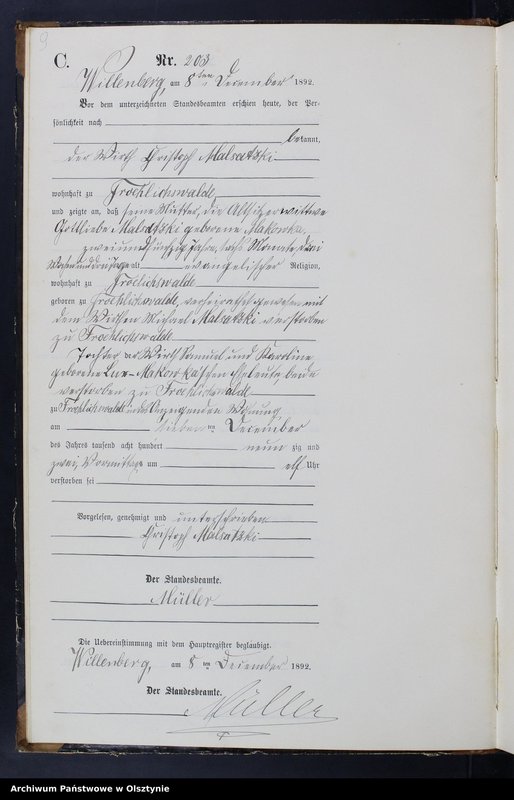 9
C.
Nr. 203
Willenberg, am 8ten December 1892.
Vor dem unterzeichneten Standesbeamten erschien heute, der Per-
sönlichkeit nach
bekannt,
der Wirth Christoph Malsatzki
wohnhaft zu Froehlichswalde
und zeigte an, daß seine Mutter, die Altsitzerwittwe
Gottliebe Malsatzki geborene Makowka,
zweiundfünfzig Jahre, sechs Monate, drei
Wochen und drei Tage alt evangelischer Religion,
wohnhaft zu Froelichswalde
geboren zu Froehlichswalde, verheirathet gewesen mit
dem Wirthen Michael Malsatzki verstorben
zu Froehlichswalde
Tochter der Wirth Samuel und Karoline
geborene Makowka'schen Eheleute, beide
verstorben zu Froehlichswalde
zu Froehlichswalde in des Anzeigenden Wohnung
am sieben ten December
des Jahres tausend acht hundert neun zig und
zwei, Vormittags um elf Uhr
verstorben sei
Vorgelesen, genehmigt und unterschrieben
Christoph Malsatzki
Der Standesbeamte.
Müller
Die Uebereinstimmung mit dem Hauptregister beglaubigt.
Willenberg, am 8 ten December 1892.
Der Standesbeamte.
Müller
Archiwum Państwowe w Olsztynie